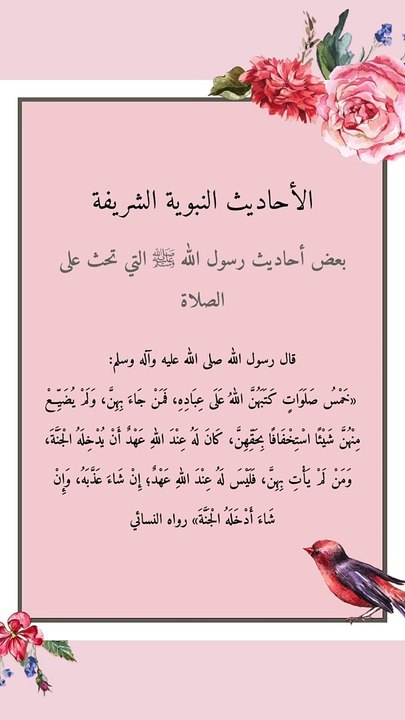 الأحاديث النبوية الشريفة
بعض أحاديث رسول الله ﷺ التي تحث على
الصلاة
قال رسول الله صلى الله عليه وآله وسلم:
«خَمْسُ صَلَوَاتٍ كَتَبَهُنَّ اللهُ عَلَى عِبَادِهِ، فَمَنْ جَاءَ بِهِنَّ، وَلَمْ يُضَيِّعْ
مِنْهُنَّ شَيْئًا اسْتِخْفَافًا بِحَقِّهِنَّ، كَانَ لَهُ عِنْدَ اللهِ عَهْدٌ أَنْ يُدْخِلَهُ الْجَنَّةَ،
وَمَنْ لَمْ يَأْتِ بِهِنَّ، فَلَيْسَ لَهُ عِنْدَ اللهِ عَهْدٌ؛ إِنْ شَاءَ عَذَّبَهُ، وَإِنْ
شَاءَ أَدْخَلَهُ الْجَنَّةَ» رواه النسائي